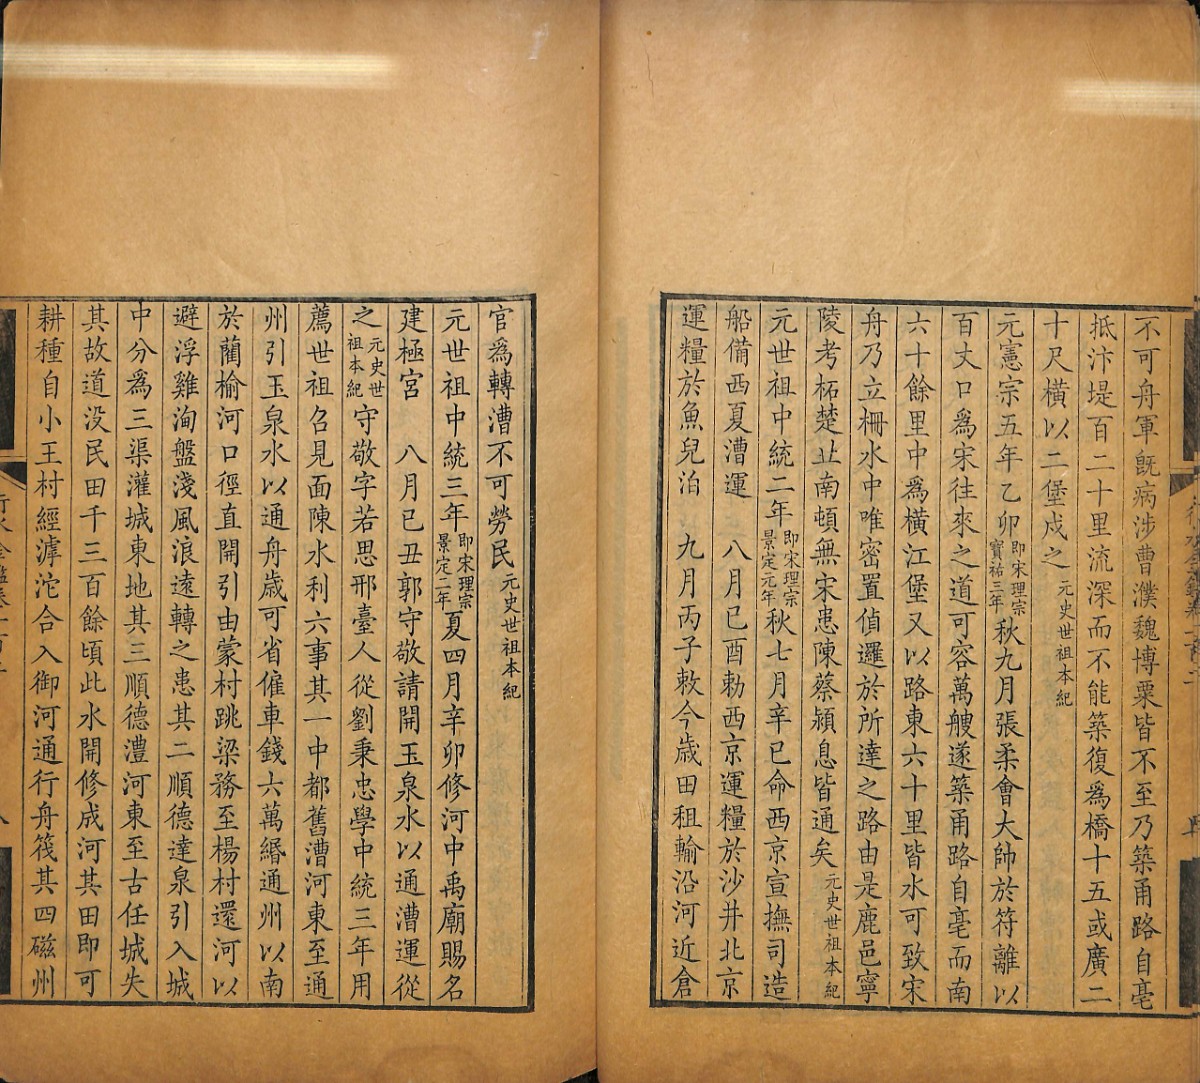 不可舟軍既病涉曹濮魏博粟皆不至乃築甬路自亳
抵汴堤百二十里流深而不能築復爲橋十五或廣二
十尺橫以二堡戍之元史世祖本紀
元憲宗五年乙卯即宋理宗寶祐三年秋九月張柔會大帥於符離以
百丈口爲宋往來之道可容萬艘遂築甬路自亳而南
六十餘里中爲橫江堡又以路東六十里皆水可致宋
舟乃立柵水中唯密置偵邏於所達之路由是鹿邑寧
陵考柘楚丘南頓無宋患陳蔡潁息皆通矣元史世祖本紀
元世祖中統二年即宋理宗景定元年秋七月辛巳命西京宣撫司造
船備西夏漕運　八月己酉勑西京運糧於沙井北京
運糧於魚兒泊　九月丙子敕今歲田租輸沿河近倉
官爲轉漕不可勞民元史世祖本紀
元世祖中統三年即宋理宗景定二年夏四月辛卯修河中禹廟賜名
建極宮　八月已丑郭守敬請開玉泉水以通漕運從
之元史世祖本紀守敬字若思邢臺人從劉秉忠學中統三年用
薦世祖召見面陳水利六事其一中都舊漕河東至通
州引玉泉水以通舟歲可省僱車錢六萬緡通州以南
於藺榆河口徑直開引由蒙村跳梁務至楊村還河以
避浮雞洵盤淺風浪遠轉之患其二順德達泉引入城
中分爲三渠灌城東地其三順德澧河東至古任城失
其故道没民田千三百餘頃此水開修成河其田即可
耕種自小王村經滹沱合入御河通行舟筏其四磁州